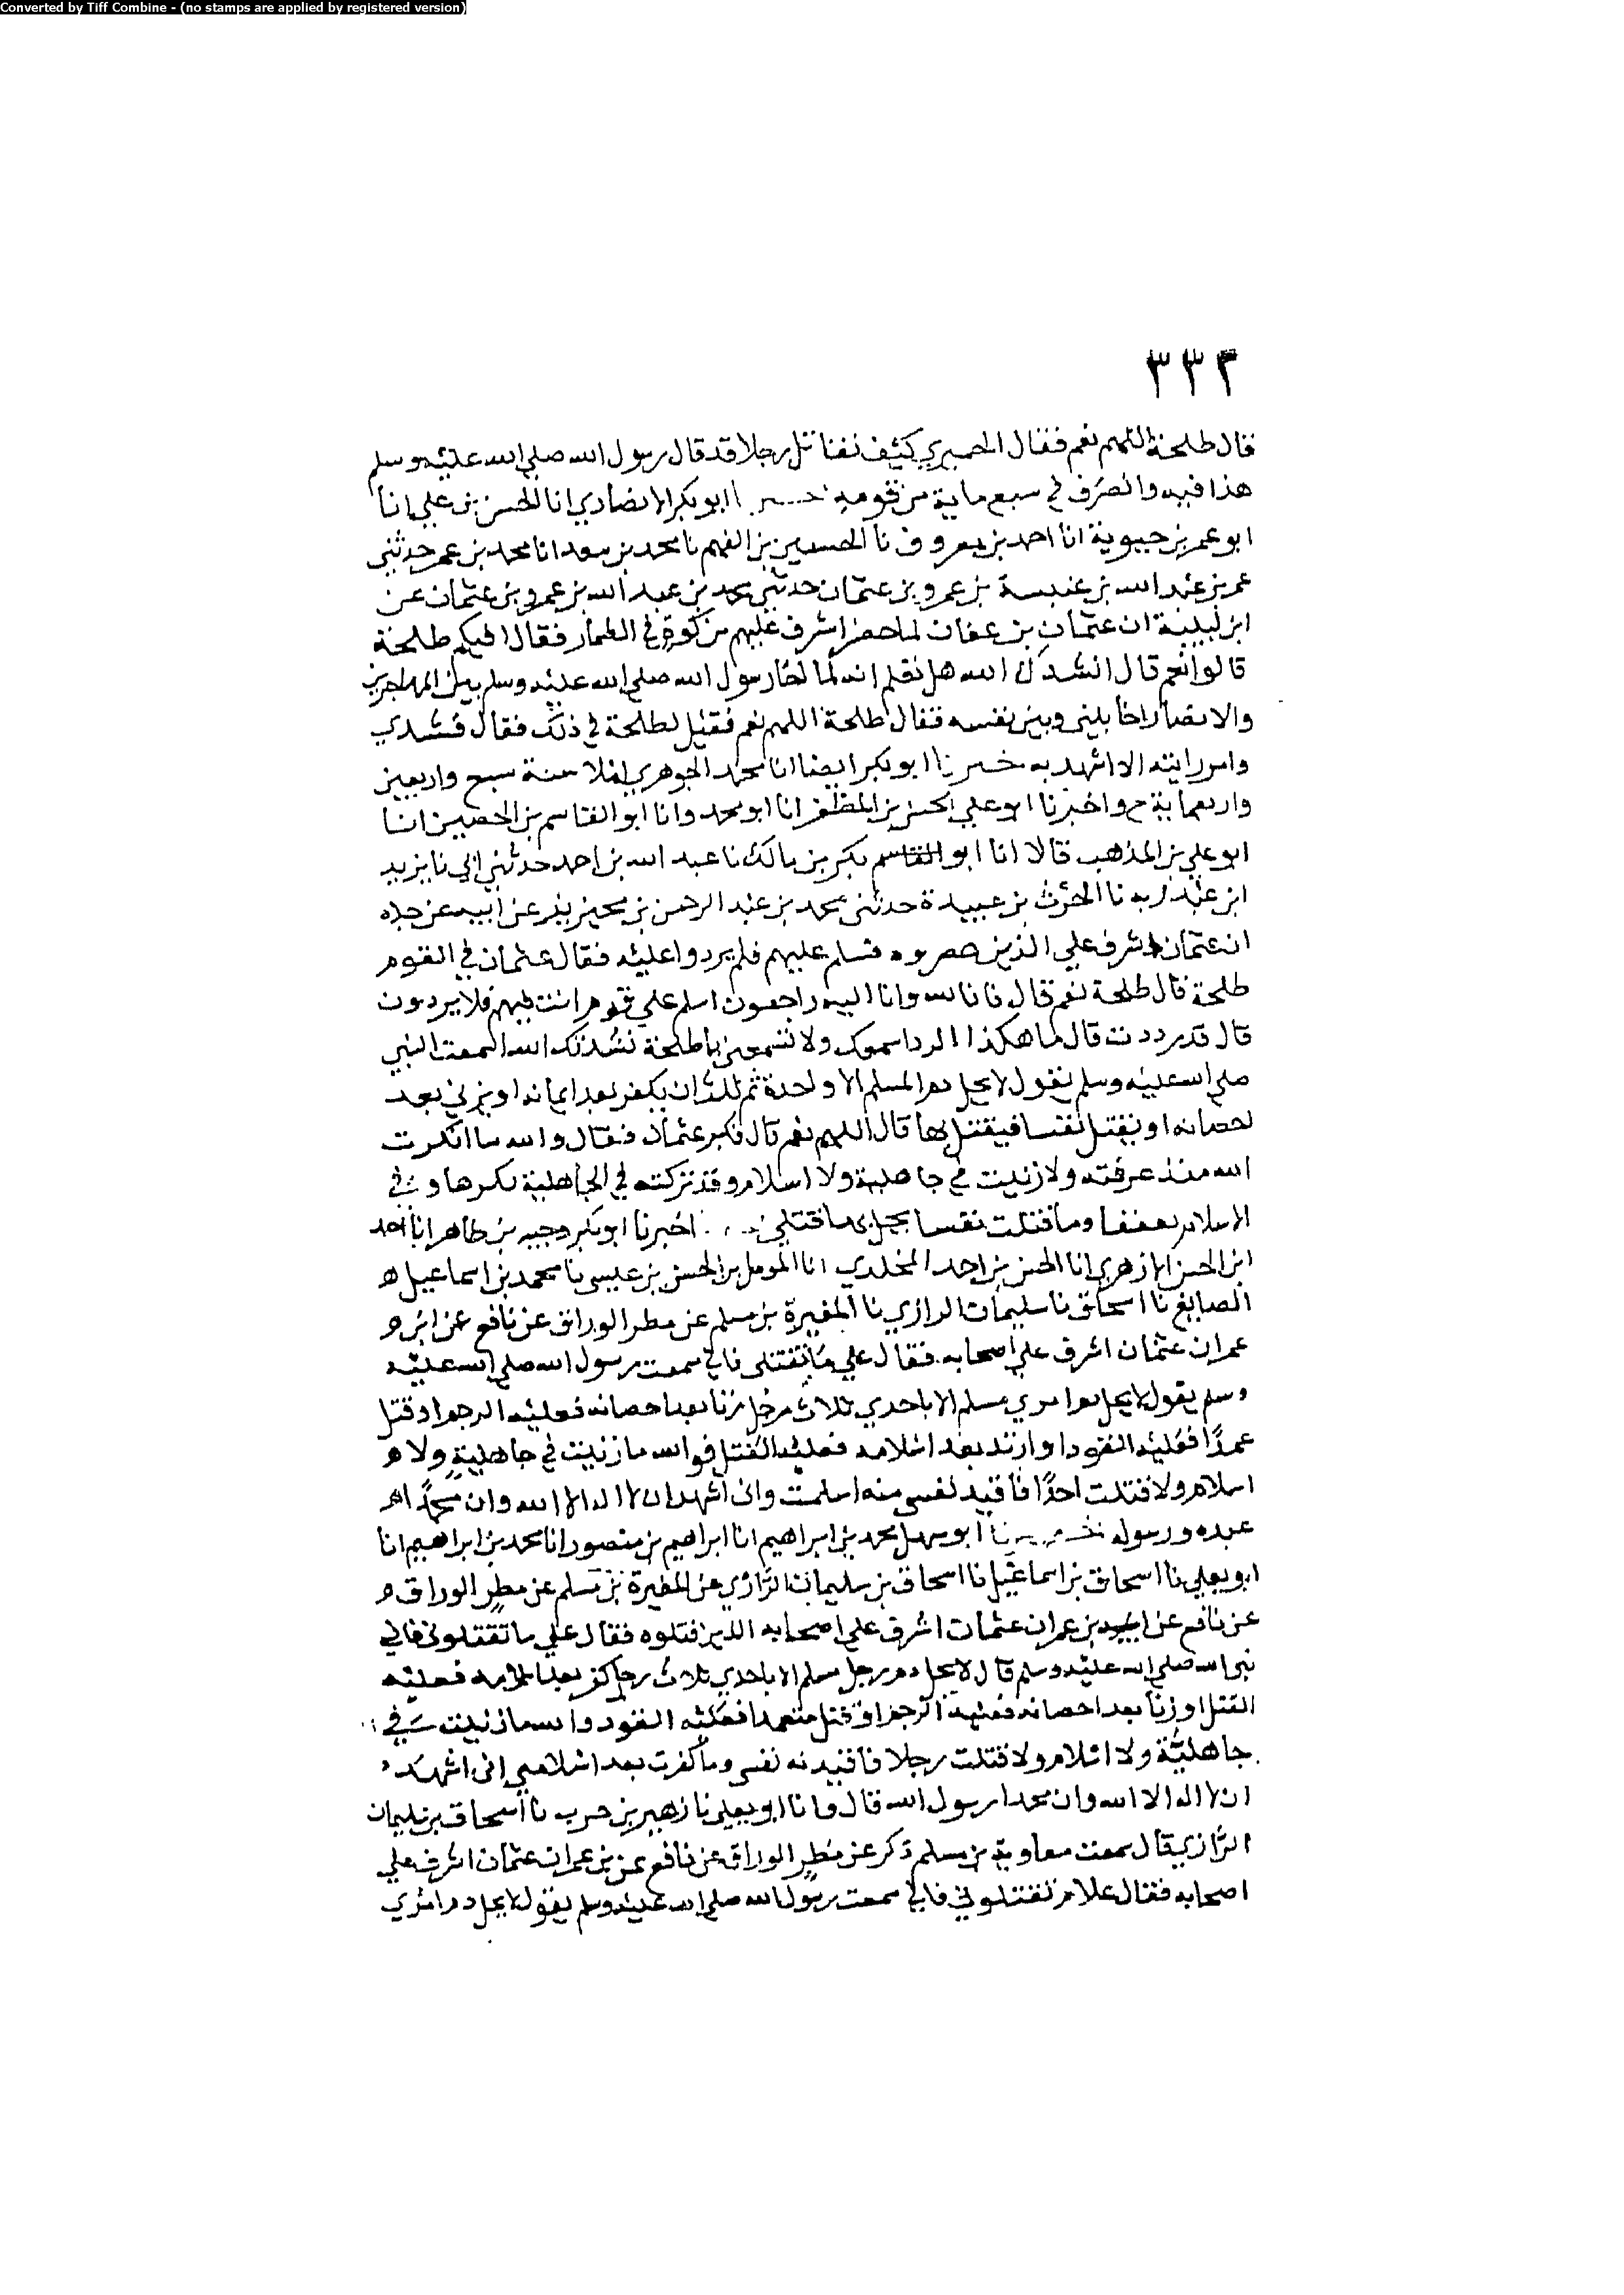 Converted by Tiff Combine - (no stamps are applied by registered version)
٣٣٣
قال طلحة اللهم نعم فقال الحميري كيف نقاتل رجلا قد قال رسول الله صلى الله عليه وسلم
هذا فيه وانصرف في سبع ماية من قومه ابو بكر الانصاري انا الحسن بن علي انا
ابو عمر بن حيوية انا احمد بن معروف نا الحسين بن الفهم نا محمد بن سعد انا محمد بن عمر حدثني
عمر بن عبد الله بن عنبسة بن عمرو بن عثمان حدثني محمد بن عبد الله بن عمرو بن عثمان عن
ابن لبيبة ان عثمان بن عفان لما حصر اشرف عليهم من كوة في الطمار فقال افيكم طلحة
قالوا نعم قال انشدك الله هل تعلم انه لما اخا رسول الله صلى الله عليه وسلم بين المهاجرين
والانصار اخا بيني وبين نفسه فقال طلحة اللهم نعم فقيل لطلحة في ذلك فقال نشدني
وامر رايته الا اشهد به خبرنا ابو بكر ايضا انا محمد الجوهري املا سنة سبع واربعين
واربعماية ح واخبرنا ابو علي الحسن بن المظفر انا ابو محمد وانا ابو القاسم بن الحصين انا
ابو علي بن المذهب قالا انا ابو بكر بن مالك نا عبد الله بن احمد حدثني ابي نا يزيد
ابن عبد ربه نا الحرث بن عبيدة حدثني محمد بن عبد الرحمن بن محيريز عن ابيه عن جده
ان عثمان اشرف علي الذين حصروه فسلم عليهم فلم يردوا عليه فقال عثمان في القوم
طلحة قال طلحة نعم قال فانا لله وانا اليه راجعون اسلم علي قوم انت فيهم فلا يردون
قال قد رددت قال ما هكذا الرد اسمعك ولا تسمعني يا طلحة نشدتك الله اسمعت النبي
صلى الله عليه وسلم يقول لا يحل دم المسلم الا واحدة من ثلاث ان يكفر بعد ايمانه او يزني بعد
احصانه او يقتل نفسا فيقتل بها قال اللهم نعم قال فكبر عثمان فقال والله ما انكرت
الله منذ عرفته ولا زنيت في جاهلية ولا اسلام وقد تركته في الجاهلية تكرها وفي
الاسلام تعففا وما قتلت نفسا يحل بها قتلي اخبرنا ابو بكر وجيه بن طاهر انا احمد
ابن الحسن الازهري انا الحسن بن احمد المخلدي انا المومل بن الحسن بن عيسى نا محمد بن اسماعيل
الصايغ نا اسحاق نا سليمان الرازي نا المغيرة بن مسلم عن مطر الوراق عن نافع عن ابن
عمر ان عثمان اشرف علي اصحابه فقال علي ما تقتلى فاني سمعت رسول الله صلى الله عليه
وسلم يقول لا يحل دم امري مسلم الا باحدي ثلاث رجل زنا بعد احصانه فعليه الرجم او قتل
عمدًا فعليه القود او ارتد بعد اسلامه فعليه القتل فوالله ما زنيت في جاهلية ولا
اسلام ولا قتلت احدًا فاقيد نفسي منه اسلمت واني اشهد ان لا اله الا الله وان محمدًا
عبده ورسوله ابو سهل محمد بن ابراهيم انا ابراهيم بن منصور انا محمد بن ابراهيم انا
ابو يعلي نا اسحاق بن اسماعيل نا اسحاق بن سليمان الرازي عن المغيرة بن مسلم عن مطر الوراق
عن نافع عن بن عمر ان عثمان اشرف على اصحابه الذين قتلوه فقال علي ما تقتلوني فاني
نبي الله صلى الله عليه وسلم قال لا يحل دم رجل مسلم الا باحدي ثلاث رجل كفر بعد اسلامه فعليه
القتل او زنا بعد احصانه فعليه الرجم او قتل متعمدا فعليه القود والله ما زنيت في
جاهلية ولا اسلام ولا قتلت رجلا فاقيد نه نفسي وما كفرت بعد اسلامي اني اشهد
ان لا اله الا الله وان محمدا رسول الله قال وانا ابو يعلي نا زهير بن حرب نا اسحاق بن سليمان
الرازي قال سمعت معاوية بن مسلم ذكر عن مطر الوراق عن نافع عن بن عمر ان عثمان اشرف علي
اصحابه فقال علام تقتلوني فاني سمعت رسول الله صلى الله عليه وسلم يقول لا يحل دم امري